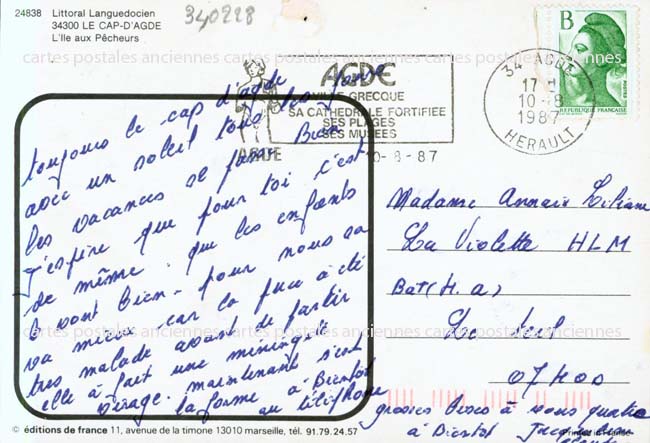 24838 Littoral Languedocien
34300 LE CAP-D'AGDE
L'Ile aux Pêcheurs
340228
AGDE
VILLE GRECQUE
SA CATHEDRALE FORTIFIEE
SES PLAGES
SES MUSEES
AGDE
10-8-87
34 AGDE
17 H
10-8
1987
HERAULT
B
REPUBLIQUE FRANÇAISE
POSTES
toujours le cap d'agde
avec un soleil tous les jours
les vacances se passe Bien
j'espère que pour toi c'est
de même. que les enfants
le vont bien. pour nous sa
va mieux car la puce à été
tres malade avant de partir
elle à fait une
virage. maintenant s'est
la forme à Bientot
au téléphone
Madame Annair Liliane
La Violette HLM
Bat (H.a)
Le Teil
07400
grosses Bises à vous quatre
à Bientot Jacqueline
cartes postales anciennes cartes postales anciennes cartes postales anciennes
cartes postales anciennes cartes postales anciennes cartes postales anciennes
© éditions de france 11, avenue de la timone 13010 marseille, tél. 91.79.24.57